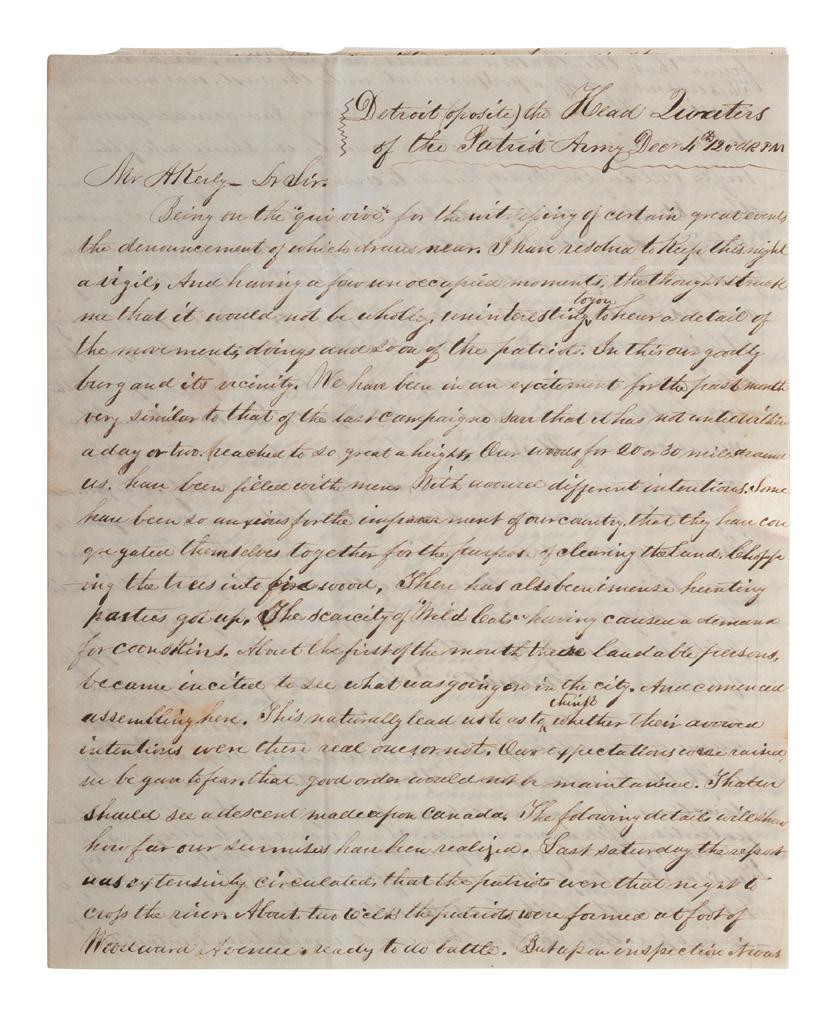 Detroit (oposite) the Head Quraters
of the Patriot Army Decr 4th 12 oclk PM
Mr A Keely - Dr Sir.
Being on the "qui vive", for the witnessing of certain great events
the denouncement of which draws near. I have resolved to keep this night
a vigil, And having a few unoccupied moments, the thought struck
me that it would not be wholly, uninteresting to you to hear a detail of
the movements, doings and so on of the patriots. In this our goodly
burg and its vicinity. We have been in an excitement for the past month
very similar to that of the last campaign save that it has not untill within
a day or two. reached to so great a height. Our woods for 20 or 30 miles around
us. have been filled with men. With avowed different intentions. Some
have been so anxious for the improvement of our country, that they have con
gregated themselves together for the purpose of clearing the land. Chopp
ing the trees into fire wood, There has also been imense hunting
parties got up. The scarcity of "Wild Cats" having caused a demand
for coonskins. About the first of the month these laudable persons,
became incited to see what was going on in the city. And comenced
assembling here. This naturally lead us to think whether their avowed
intentions were there real ones or not. Our expectations were raised,
we began to fear, that good order would not be maintained. That we
should see a descent made upon Canada. The folowing details will show
how far our surmises have been realized. Last saturday the report
was extensively circulated, that the patriots were that night to
cross the river. About two oclk the patriots were formed at foot of
Woodward Avenue. ready to do battle. But upon inspection it was